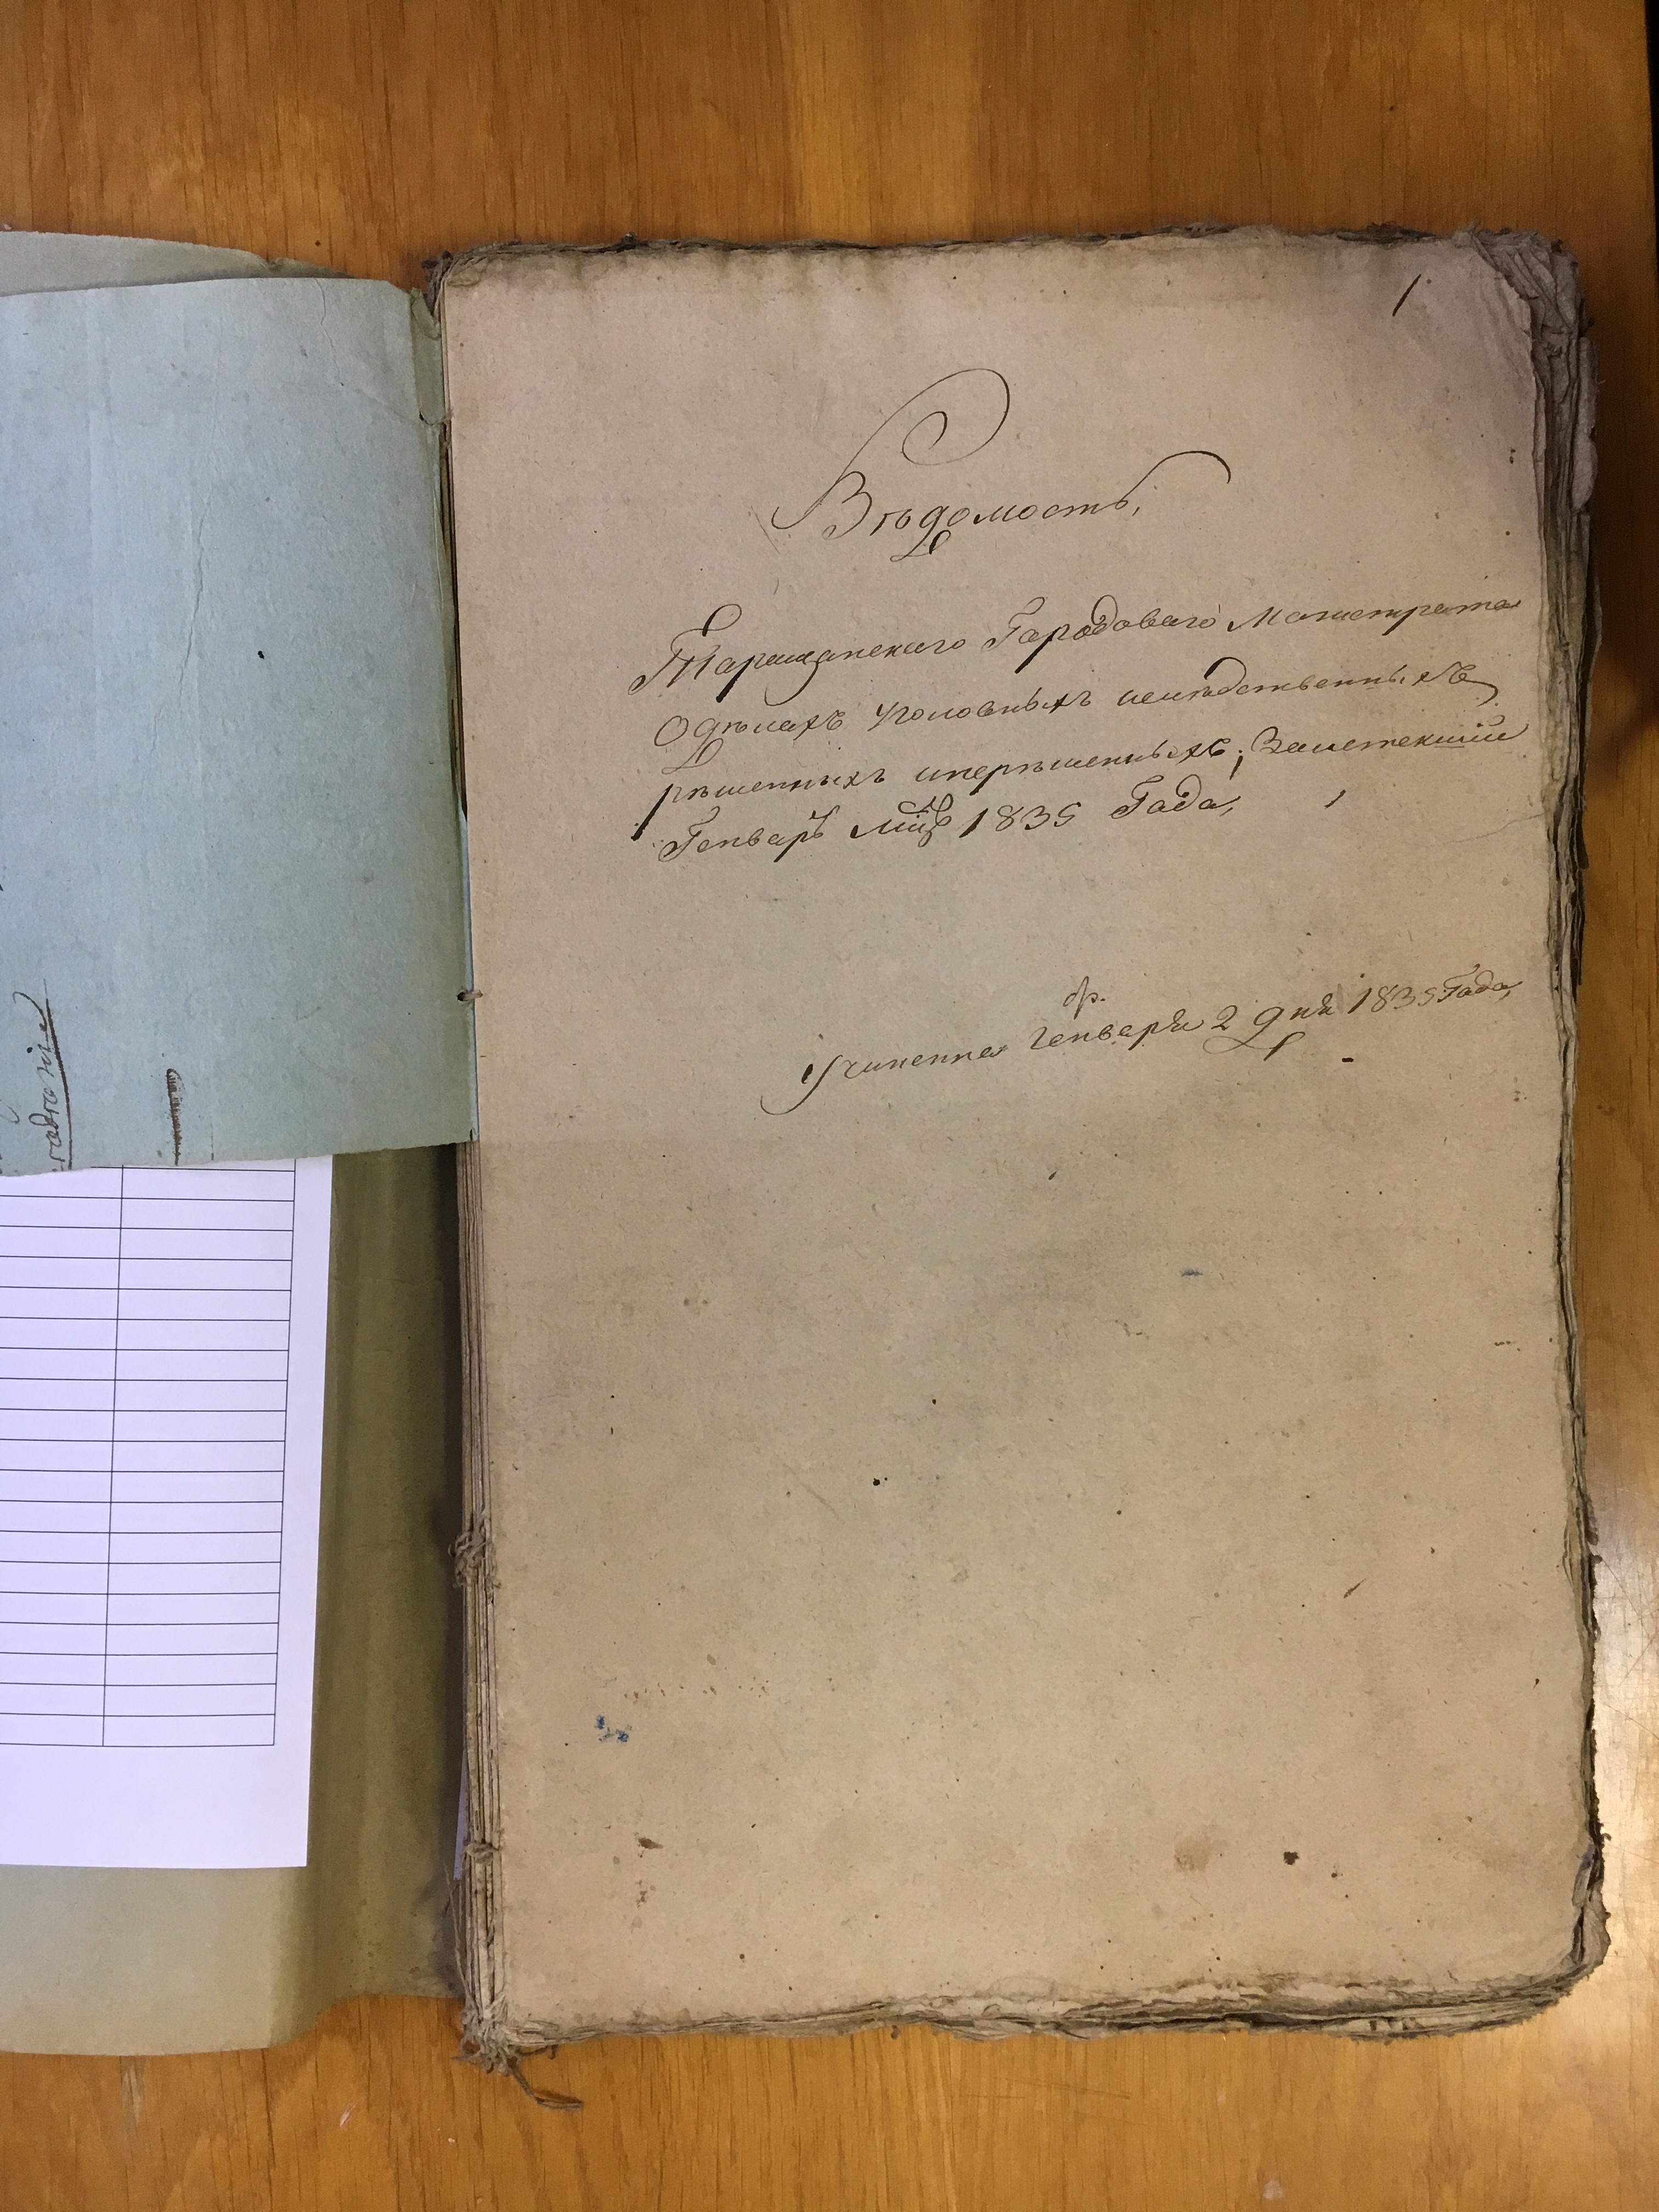 1
Вѣдомость,
Таращанскаго Городоваго Магистрата
Одѣлахъ Уголовныхъ ислѣдственныхъ
рѣшенныхъ инерѣшенныхъ, Заистекший
Генварь Мцъ 1835 Года,
Учиненна Генваря 2 дня 1835 Года,